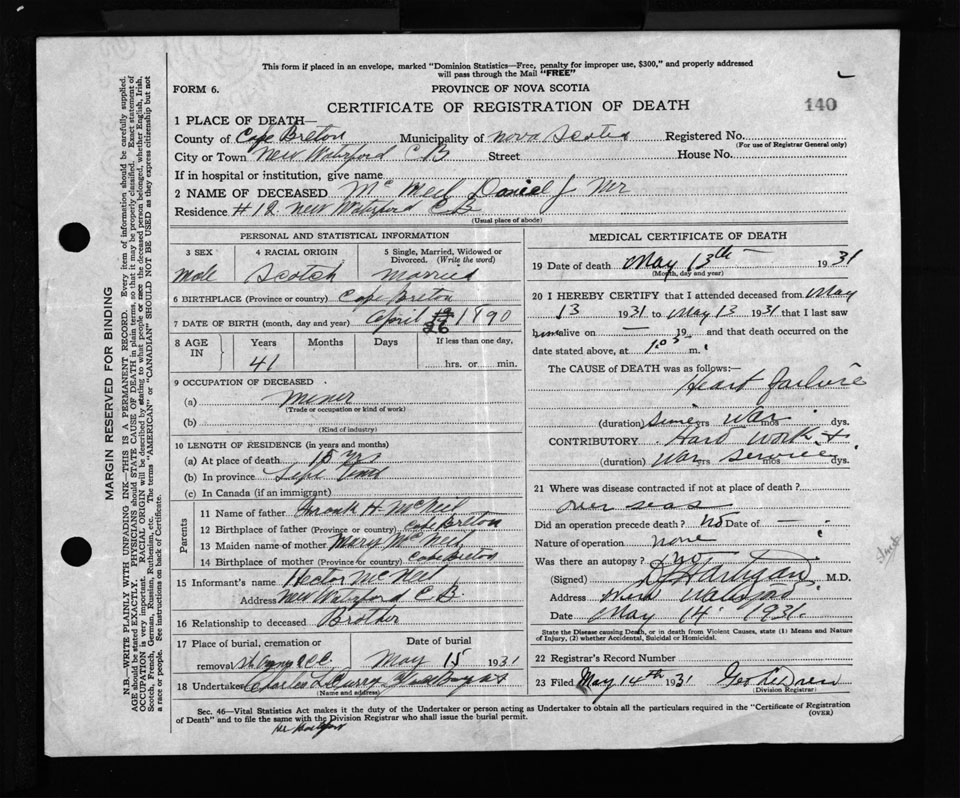 This form if placed in an envelope, marked "Dominion Statistics—Free, penalty for improper use, $300," and properly addressed
will pass through the Mail "FREE"
FORM 6.
PROVINCE OF NOVA SCOTIA
CERTIFICATE OF REGISTRATION OF DEATH
140
1 PLACE OF DEATH—
County of Cape Breton Municipality of Nova Scotia Registered No.
(For use of Registrar General only)
City or Town New Waterford C B Street House No.
If in hospital or institution, give name
2 NAME OF DECEASED Mc Neil Daniel J Mr
Residence # 12 New Waterford C B
(Usual place of abode)
PERSONAL AND STATISTICAL INFORMATION
3 SEX
4 RACIAL ORIGIN
5 Single, Married, Widowed or
Divorced. (Write the word)
Male Scotch Married
6 BIRTHPLACE (Province or country) Cape Breton
7 DATE OF BIRTH (month, day and year) April 26 1890
8 AGE
IN
Years Months Days If less than one day,
41
hrs. or min.
9 OCCUPATION OF DECEASED
(a) Miner
(Trade or occupation or kind of work)
(b)
(Kind of industry)
10 LENGTH OF RESIDENCE (in years and months)
(a) At place of death 15 yrs
(b) In province Life Time
(c) In Canada (if an immigrant)
Parents
11 Name of father Frank H. McNeil
12 Birthplace of father (Province or country) Cape Breton
13 Maiden name of mother Mary McNeil
14 Birthplace of mother (Province or country) Cape Breton
15 Informant's name Hector McNeil
Address New Waterford C B.
16 Relationship to deceased Brother
17 Place of burial, cremation or Date of burial
removal May 15 1931
18 Undertaker Charles L Curry
(Name and address)
MEDICAL CERTIFICATE OF DEATH
19 Date of death May 13th 1931
(Month, day and year)
20 I HEREBY CERTIFY that I attended deceased from May
13 1931 to May 13 1931 that I last saw
him alive on — 19 and that death occurred on
date stated above, at m.
The CAUSE of DEATH was as follows:
Heart Failure
(duration) Since yrs War mos dys.
CONTRIBUTORY Hard work &
(duration) War yrs service mos dys.
21 Where was disease contracted if not at place of death?
over seas
Did an operation precede death? no Date of —
Nature of operation none
Was there an autopsy? no
(Signed) M.D.
Address New Waterford
Date May 14 1931.
State the Disease causing Death, or in death from Violent Causes, state (1) Means and Nature
of Injury, (2) whether Accidental, Suicidal or Homicidal.
22 Registrar's Record Number
23 Filed May 14th 1931
(Division Registrar)
Sec. 46—Vital Statistics Act makes it the duty of the Undertaker or person acting as Undertaker to obtain all the particulars required in the "Certificate of Registration
of Death" and to file the same with the Division Registrar who shall issue the burial permit.
(OVER)
MARGIN RESERVED FOR BINDING
N.B.—WRITE PLAINLY WITH UNFADING INK—THIS IS A PERMANENT RECORD. Every item of information should be carefully supplied.
AGE should be stated EXACTLY. PHYSICIANS should STATE CAUSE OF DEATH in plain terms, so that it may be properly classified. Exact statement of
OCCUPATION is very important. RACIAL ORIGIN will be described by stating to what people or race the deceased person belonged, whether English, Irish,
Scotch, French, German, Russian, Ruthenian, etc. The terms "AMERICAN" or "CANADIAN" SHOULD NOT BE USED as they express citizenship but not
a race or people. See instructions on back of Certificate.